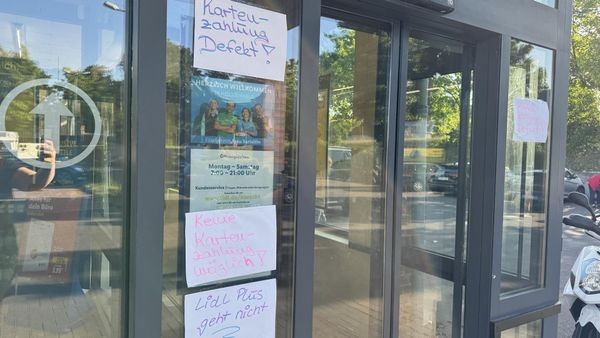 Karten-
zahlung
Defekt!
HERZLICH WILLKOMMEN
Öffnungszeiten
Montag – Samstag
7:00 – 21:00 Uhr
Keine
Karten-
zahlung
möglich!
Lidl Plus
geht nicht